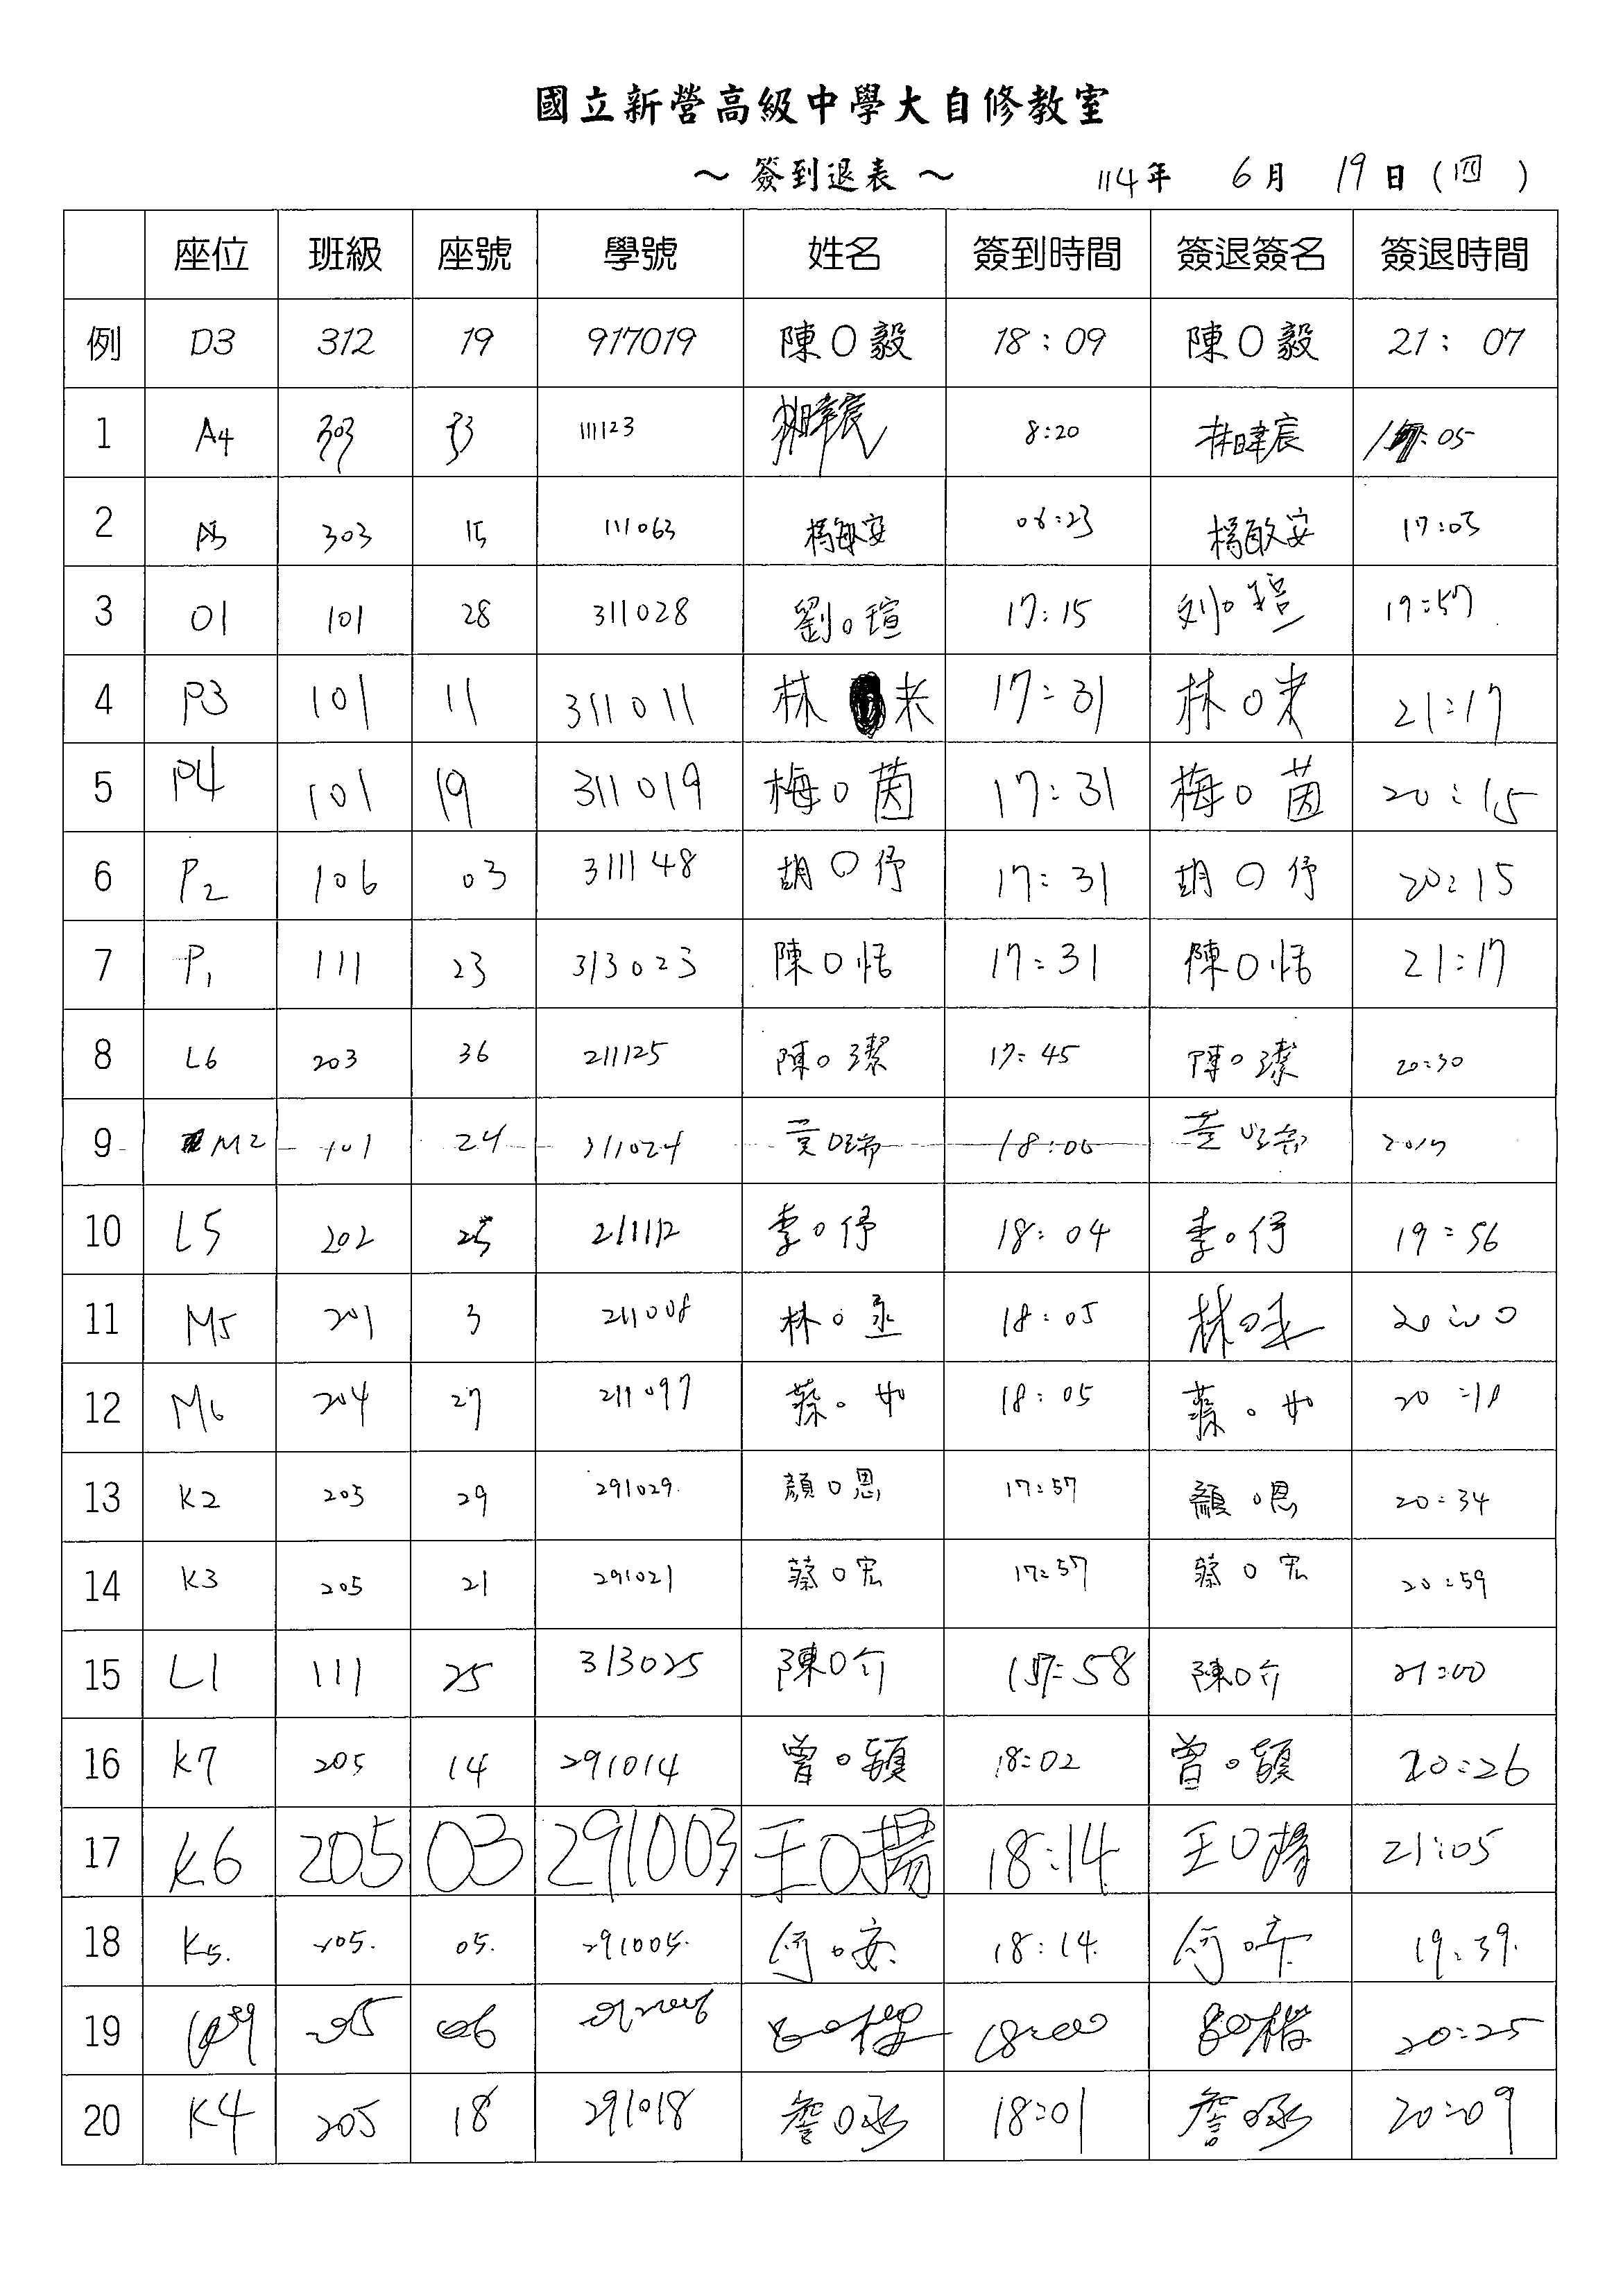 國立新營高級中學大自修教室
～ 簽到退表 ～ 114年 6月 19日(四)
座位 班級 座號 學號 姓名 簽到時間 簽退簽名 簽退時間
例 D3 312 19 917019 陳O毅 18:09 陳O毅 21:07
1 A4 303 33 111123 林暐宸 8:20 林暐宸 :05
2 A5 303 15 111063 楊敏安 08:23 楊敏安 17:03
3 O1 101 28 311028 劉O瑄 17:15 刘O瑄 19:57
4 P3 101 11 311011 林 未 17:31 林O未 21:17
5 P4 101 19 311019 梅O茵 17:31 梅O茵 20:15
6 P2 106 03 311148 胡O伃 17:31 胡O伃 20:15
7 P1 111 23 313023 陳O恬 17:31 陳O恬 21:17
8 L6 203 36 211125 陳O潔 17:45 陳O潔 20:30
9 M2 101 24 311024 黃O瑞 18:00 黃O瑞
10 L5 202 25 211112 李O伃 18:04 李O伃 19:56
11 M5 201 3 211008 林O丞 18:05 林O丞 20:00
12 M6 204 27 211097 蔡O如 18:05 蔡O如 20:18
13 K2 205 29 291029 顏O恩 17:57 顏O恩 20:34
14 K3 205 21 291021 蔡O宏 17:57 蔡O宏 20:59
15 L1 111 25 313025 陳O介 17:58 陳O介 21:00
16 K7 205 14 291014 曾O穎 18:02 曾O穎 20:26
17 K6 205 03 291003 王O揚 18:14 王O揚 21:05
18 K5. 205. 05. 291005. 何O安 18:14. 何O安 19:39.
19 205 06 291006 18:00 20:25
20 K4 205 18 291018 詹O承 18:01 詹O承 20:09